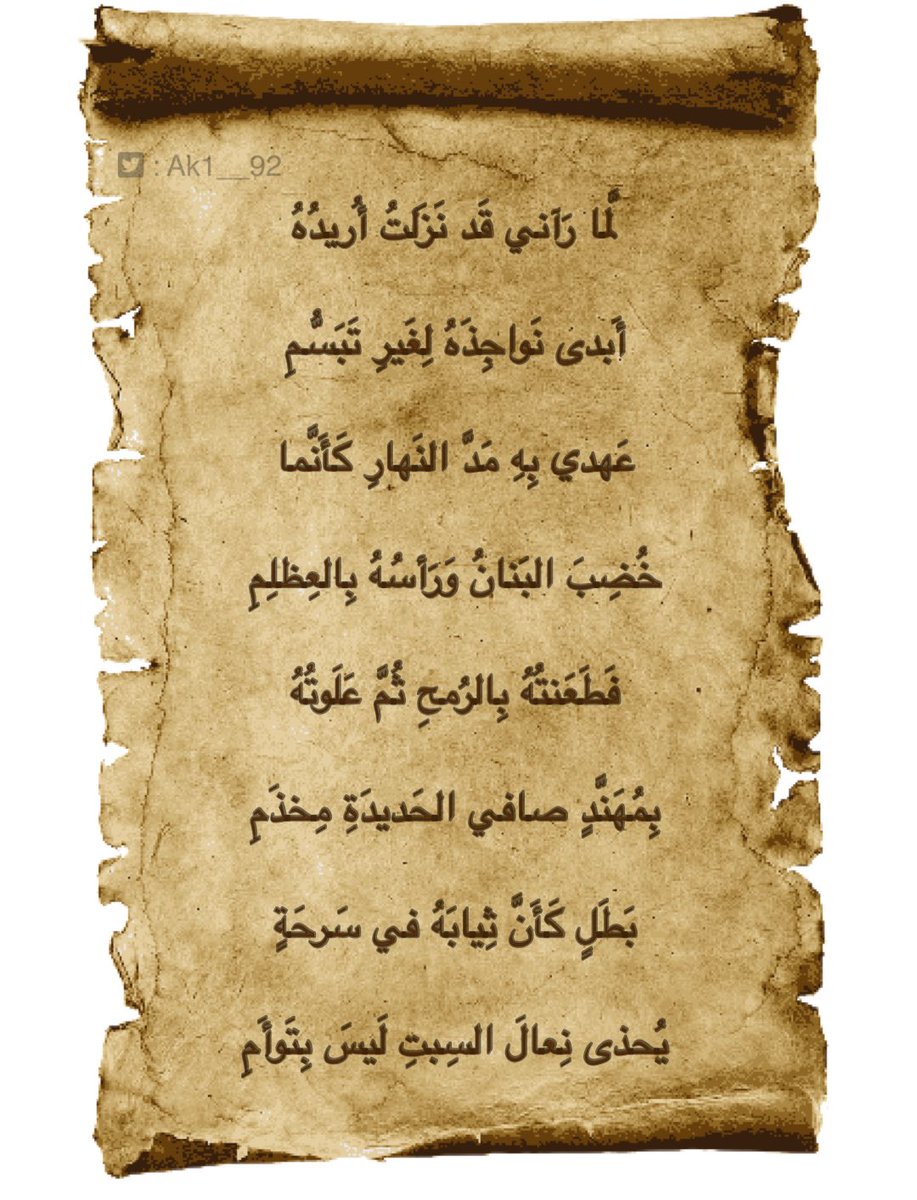 : Ak1__92
لَمّا رَآني قَد نَزَلتُ أُريدُهُ
أَبدى نَواجِذَهُ لِغَيرِ تَبَسُّمِ
عَهدي بِهِ مَدَّ النَهارِ كَأَنَّما
خُضِبَ البَنانُ وَرَأسُهُ بِالعِظلِمِ
فَطَعَنتُهُ بِالرُمحِ ثُمَّ عَلَوتُهُ
بِمُهَنَّدٍ صافي الحَديدَةِ مِخذَمِ
بَطَلٍ كَأَنَّ ثِيابَهُ في سَرحَةٍ
يُحذى نِعالَ السِبتِ لَيسَ بِتَوأَمِ